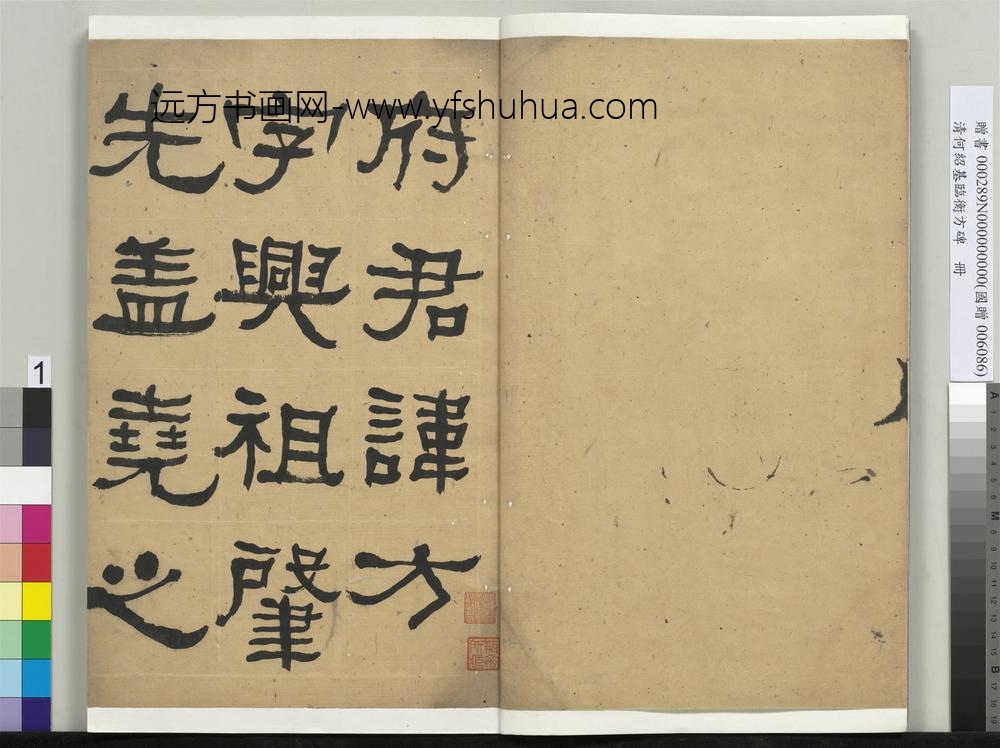 远方书画网-www.yfshuhua.com
府君諱方
字興祖肇
先盖堯之
贈書 000289N000000000(國贈 006086)
清何紹基臨衡方碑 冊
1
A 1 2 3 4 5 6 M 8 9 10 11 12 13 14 15 B 17 18 19